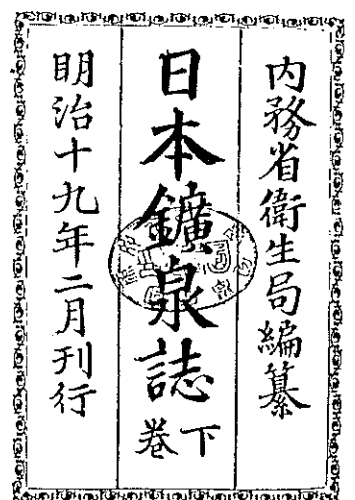 内務省衛生局編纂
日本鑛泉誌 下卷
明治十九年二月刊行